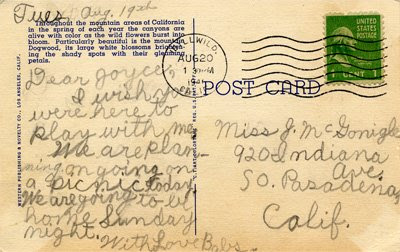 Tues Aug. 19th
Throughout the mountain areas of California
in the spring of each year the canyons are
alive with color as the wild flowers burst into
bloom. Particularly beautiful is the mountain
Dogwood, its large white blossoms brighten-
ing the shady spots with their gleaming
petals.
Dear Joyce,
I wish you
were here to
play with me
We are plan-
ning on going on
a picnic today
We are going to be
home Sunday
night.
With Love Babs.
WESTERN PUBLISHING & NOVELTY CO., LOS ANGELES, CALIF.
IDYLLWILD,
AUG 20
CALIF.
UNITED
STATES
POSTAGE
1 CENT 1
POST CARD
Miss J. McGonigle
920 Indiana
Ave.
So. Pasadena,
Calif.